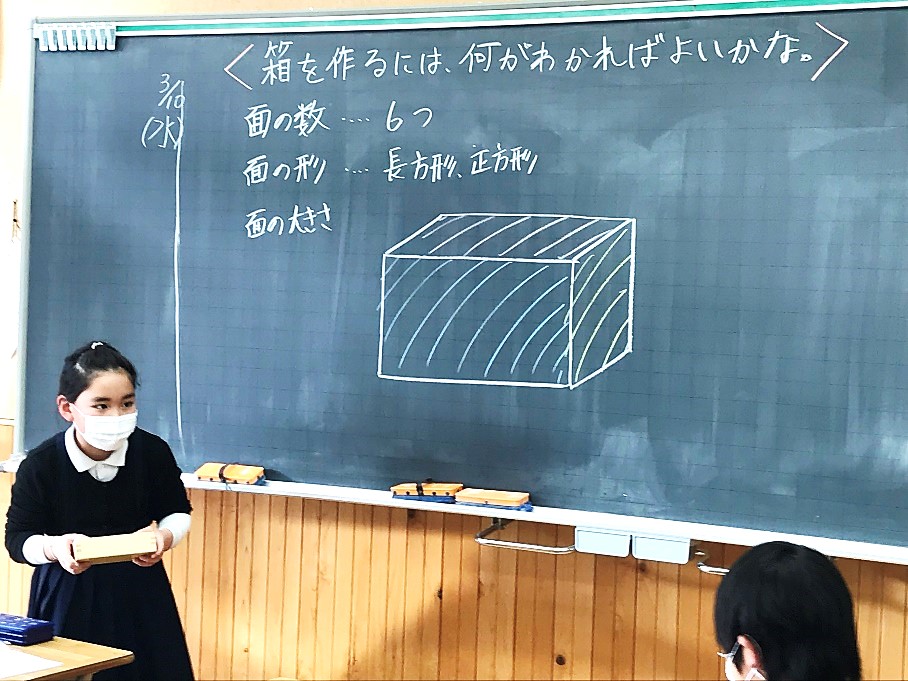 3/10
(水)
<箱を作るには、何がわかればよいかな。>
面の数 ‥‥ 6つ
面の形 ‥‥ 長方形、正方形
面の大きさ